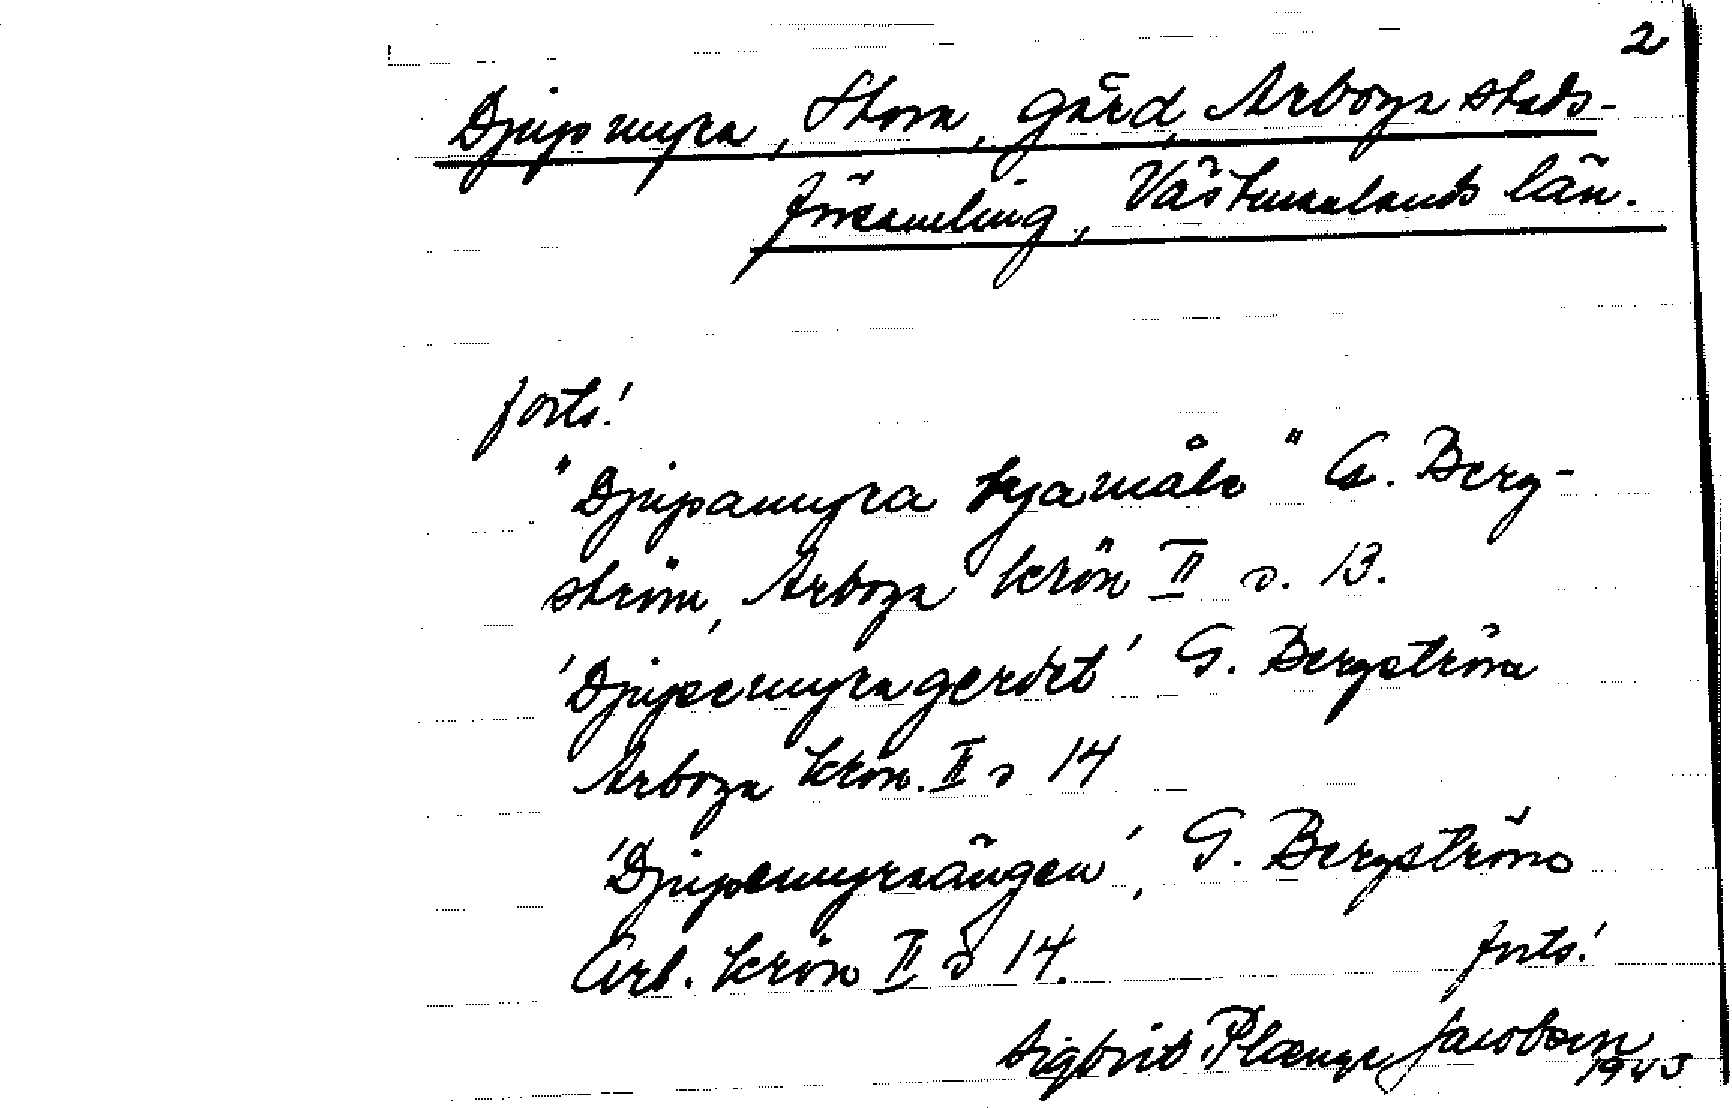 2
Djupmyra, Stora, gård, Arboga stads-
församling, Västmanlands län.
forts!
"Djupamyra kyamåla" G. Berg-
ström, Arboga krön II s. 13.
'Djupemyragerdet' G. Bergström
Arboga krön. II s 14
'Djupemyraängen', G. Bergströms
Arb. krön II s 14.
forts!
Sigbrit Plænge Jacobson
1945